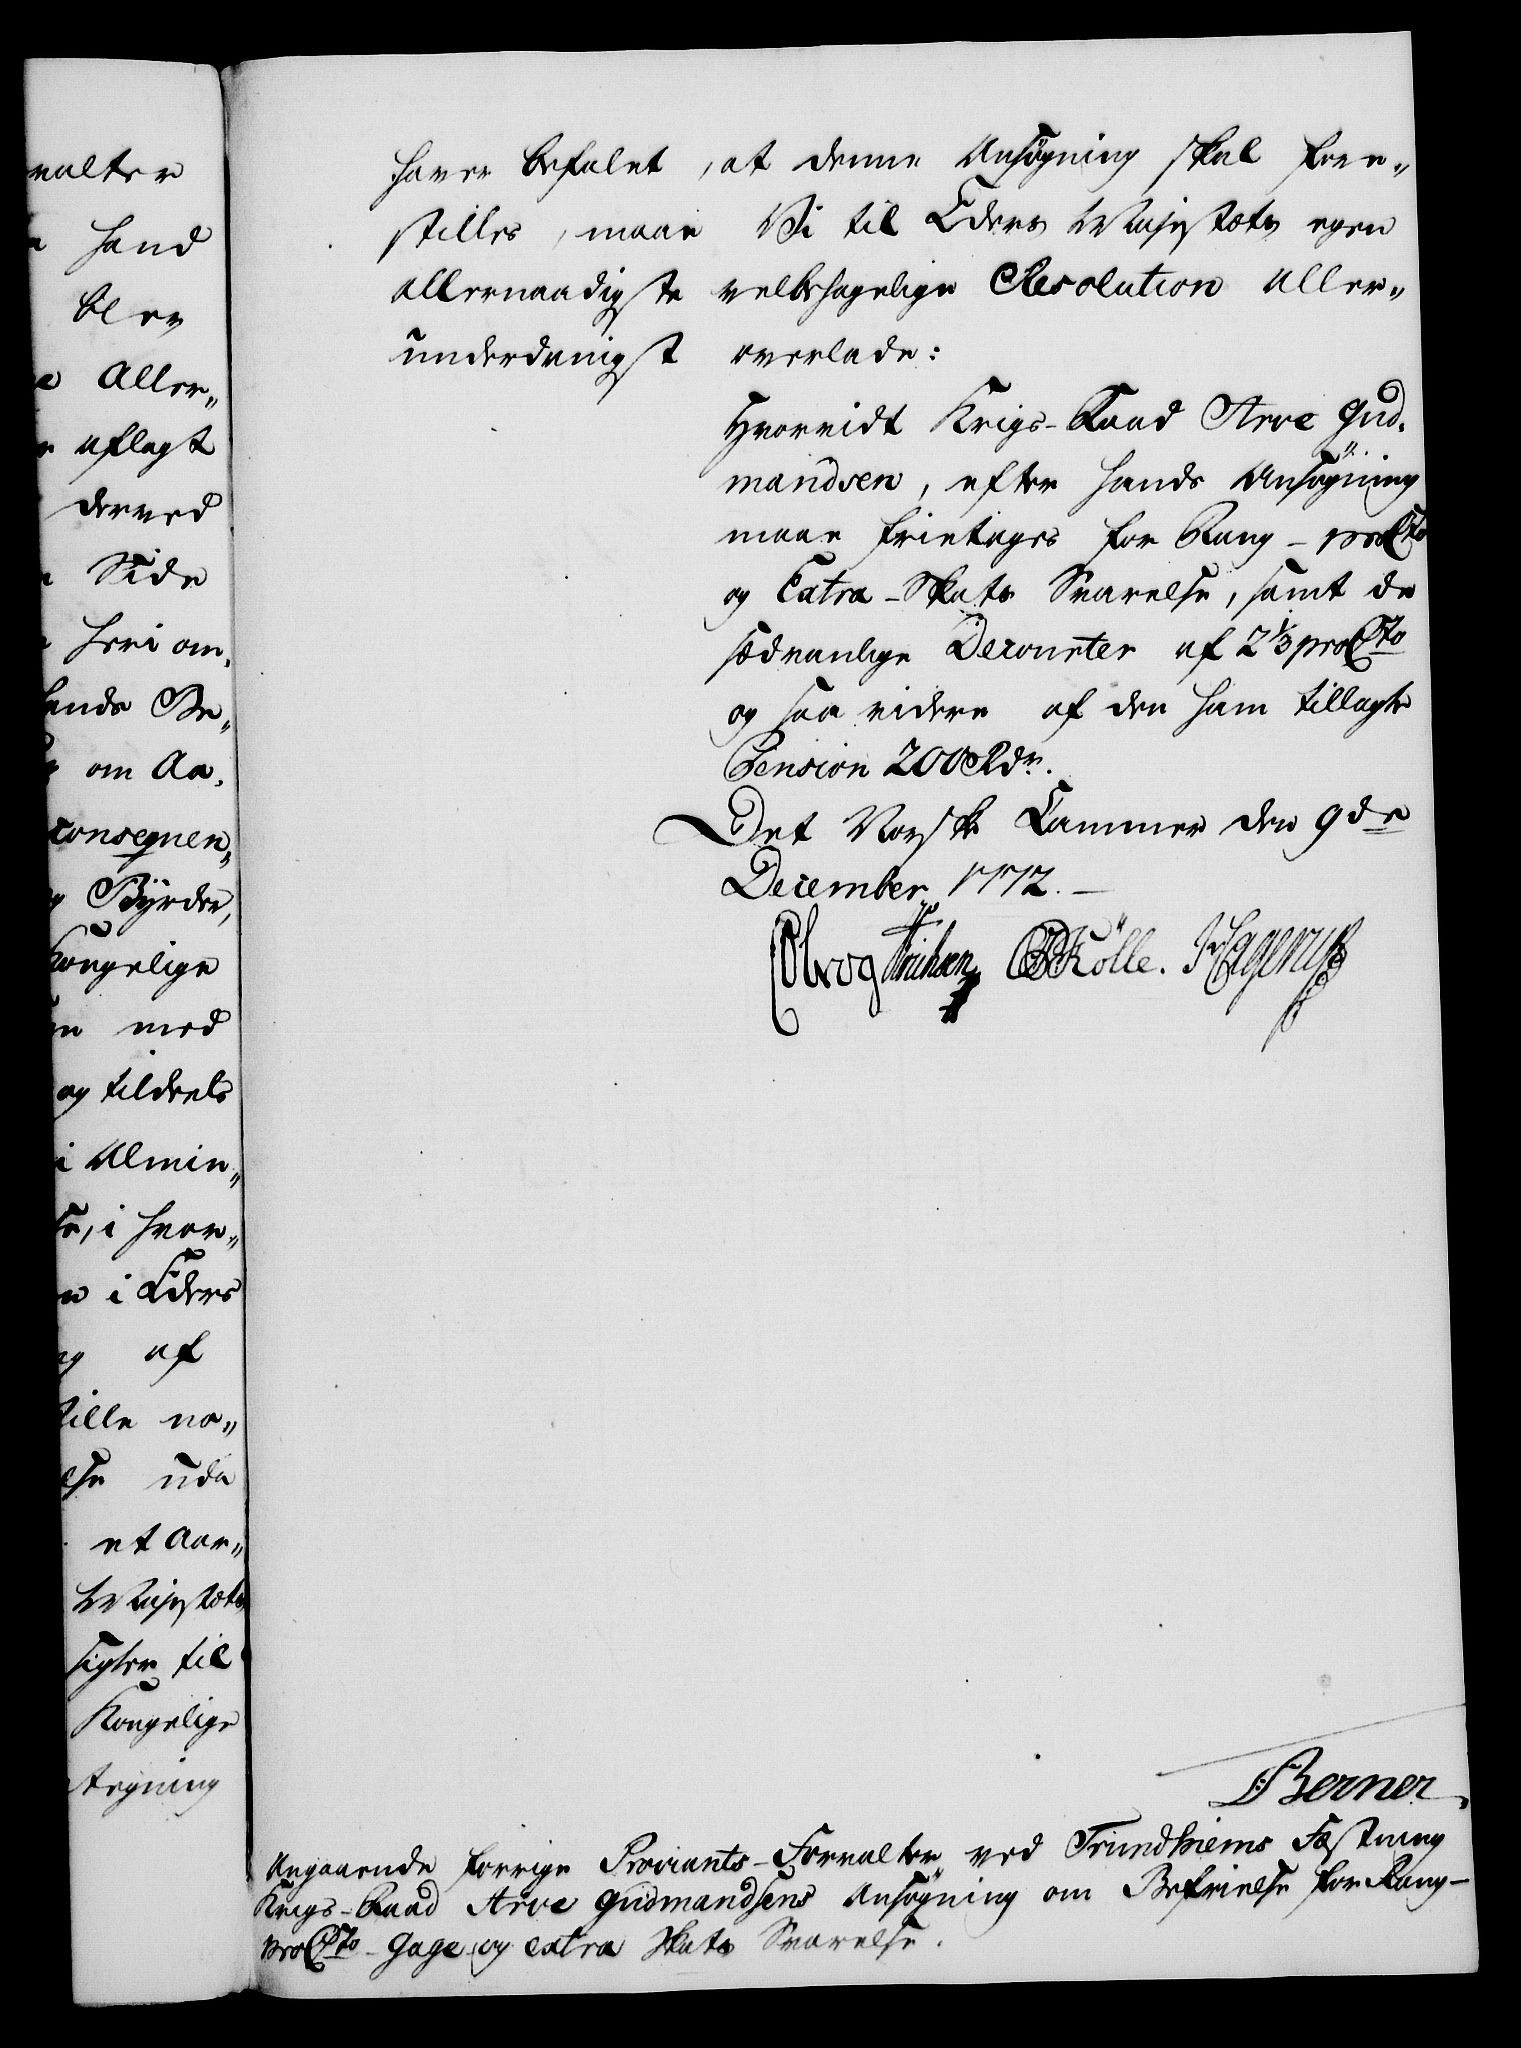 valter
hand
blev
Aller„
aflagt
derved
Side
heri om„
hands Be„
om Aa„
consequen„
Byrder,
Kongelige
med
og tildeels
i Almin„
i hvor„
i Eders
af
tille no„
else uden
et Aar„
Majestæts
sigter til
Kongelige
tegning
haver befalet, at denne Ansøgning skal fore„
stilles, maae Vi til Eders Majestæts egen
allernaadigste velbehagelige Resolution aller„
underdanigst overlade:
Hvorvidt Krigs-Raad Arve Gud„
mandsen, efter hands Ansøgning
maae fritages for Rang- proCto
og Extra-Skats Svarelse, samt de
sædvanlige Decourter af 2 1/3 proCto
og saa videre af den ham tillagte
Pension 200 Rdr.
Det Norske Cammer den 9de
December 1772.
Holrog Erichsen CDKölle. Hagerup
Berner.
Angaaende forrige Proviants-Forvalter ved Trundhiems Fæstning
Krigs-Raad Arve Gudmandsens Ansøgning om Befrielse for Rang-
proCto-Gage og extra Skats Svarelse.